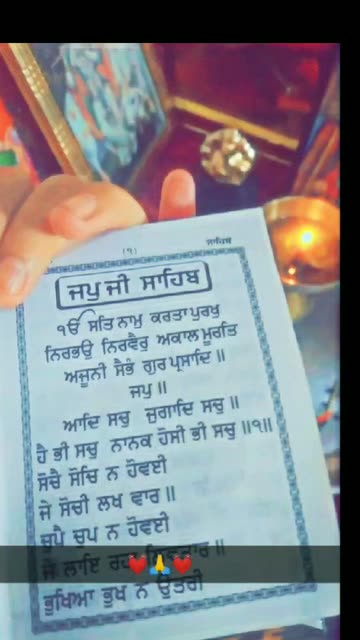 (੧)
ਸਾਹਿਬ
ਜਪੁ ਜੀ ਸਾਹਿਬ
ੴ ਸਤਿ ਨਾਮੁ ਕਰਤਾ ਪੁਰਖੁ
ਨਿਰਭਉ ਨਿਰਵੈਰੁ ਅਕਾਲ ਮੂਰਤਿ
ਅਜੂਨੀ ਸੈਭੰ ਗੁਰ ਪ੍ਰਸਾਦਿ ॥
ਜਪੁ ॥
ਆਦਿ ਸਚੁ ਜੁਗਾਦਿ ਸਚੁ ॥
ਹੈ ਭੀ ਸਚੁ ਨਾਨਕ ਹੋਸੀ ਭੀ ਸਚੁ ॥੧॥
ਸੋਚੈ ਸੋਚਿ ਨ ਹੋਵਈ
ਜੇ ਸੋਚੀ ਲਖ ਵਾਰ ॥
ਚੁਪੈ ਚੁਪ ਨ ਹੋਵਈ
ਜੇ ਲਾਇ ਰਹਾ ॥
ਭੁਖਿਆ ਭੁਖ ਨ ਉਤਰੀ